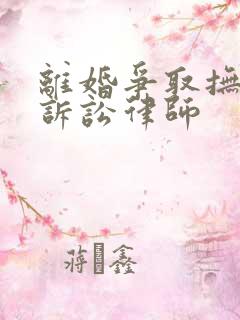 離婚爭取撫
訴訟律師
蔣鑫